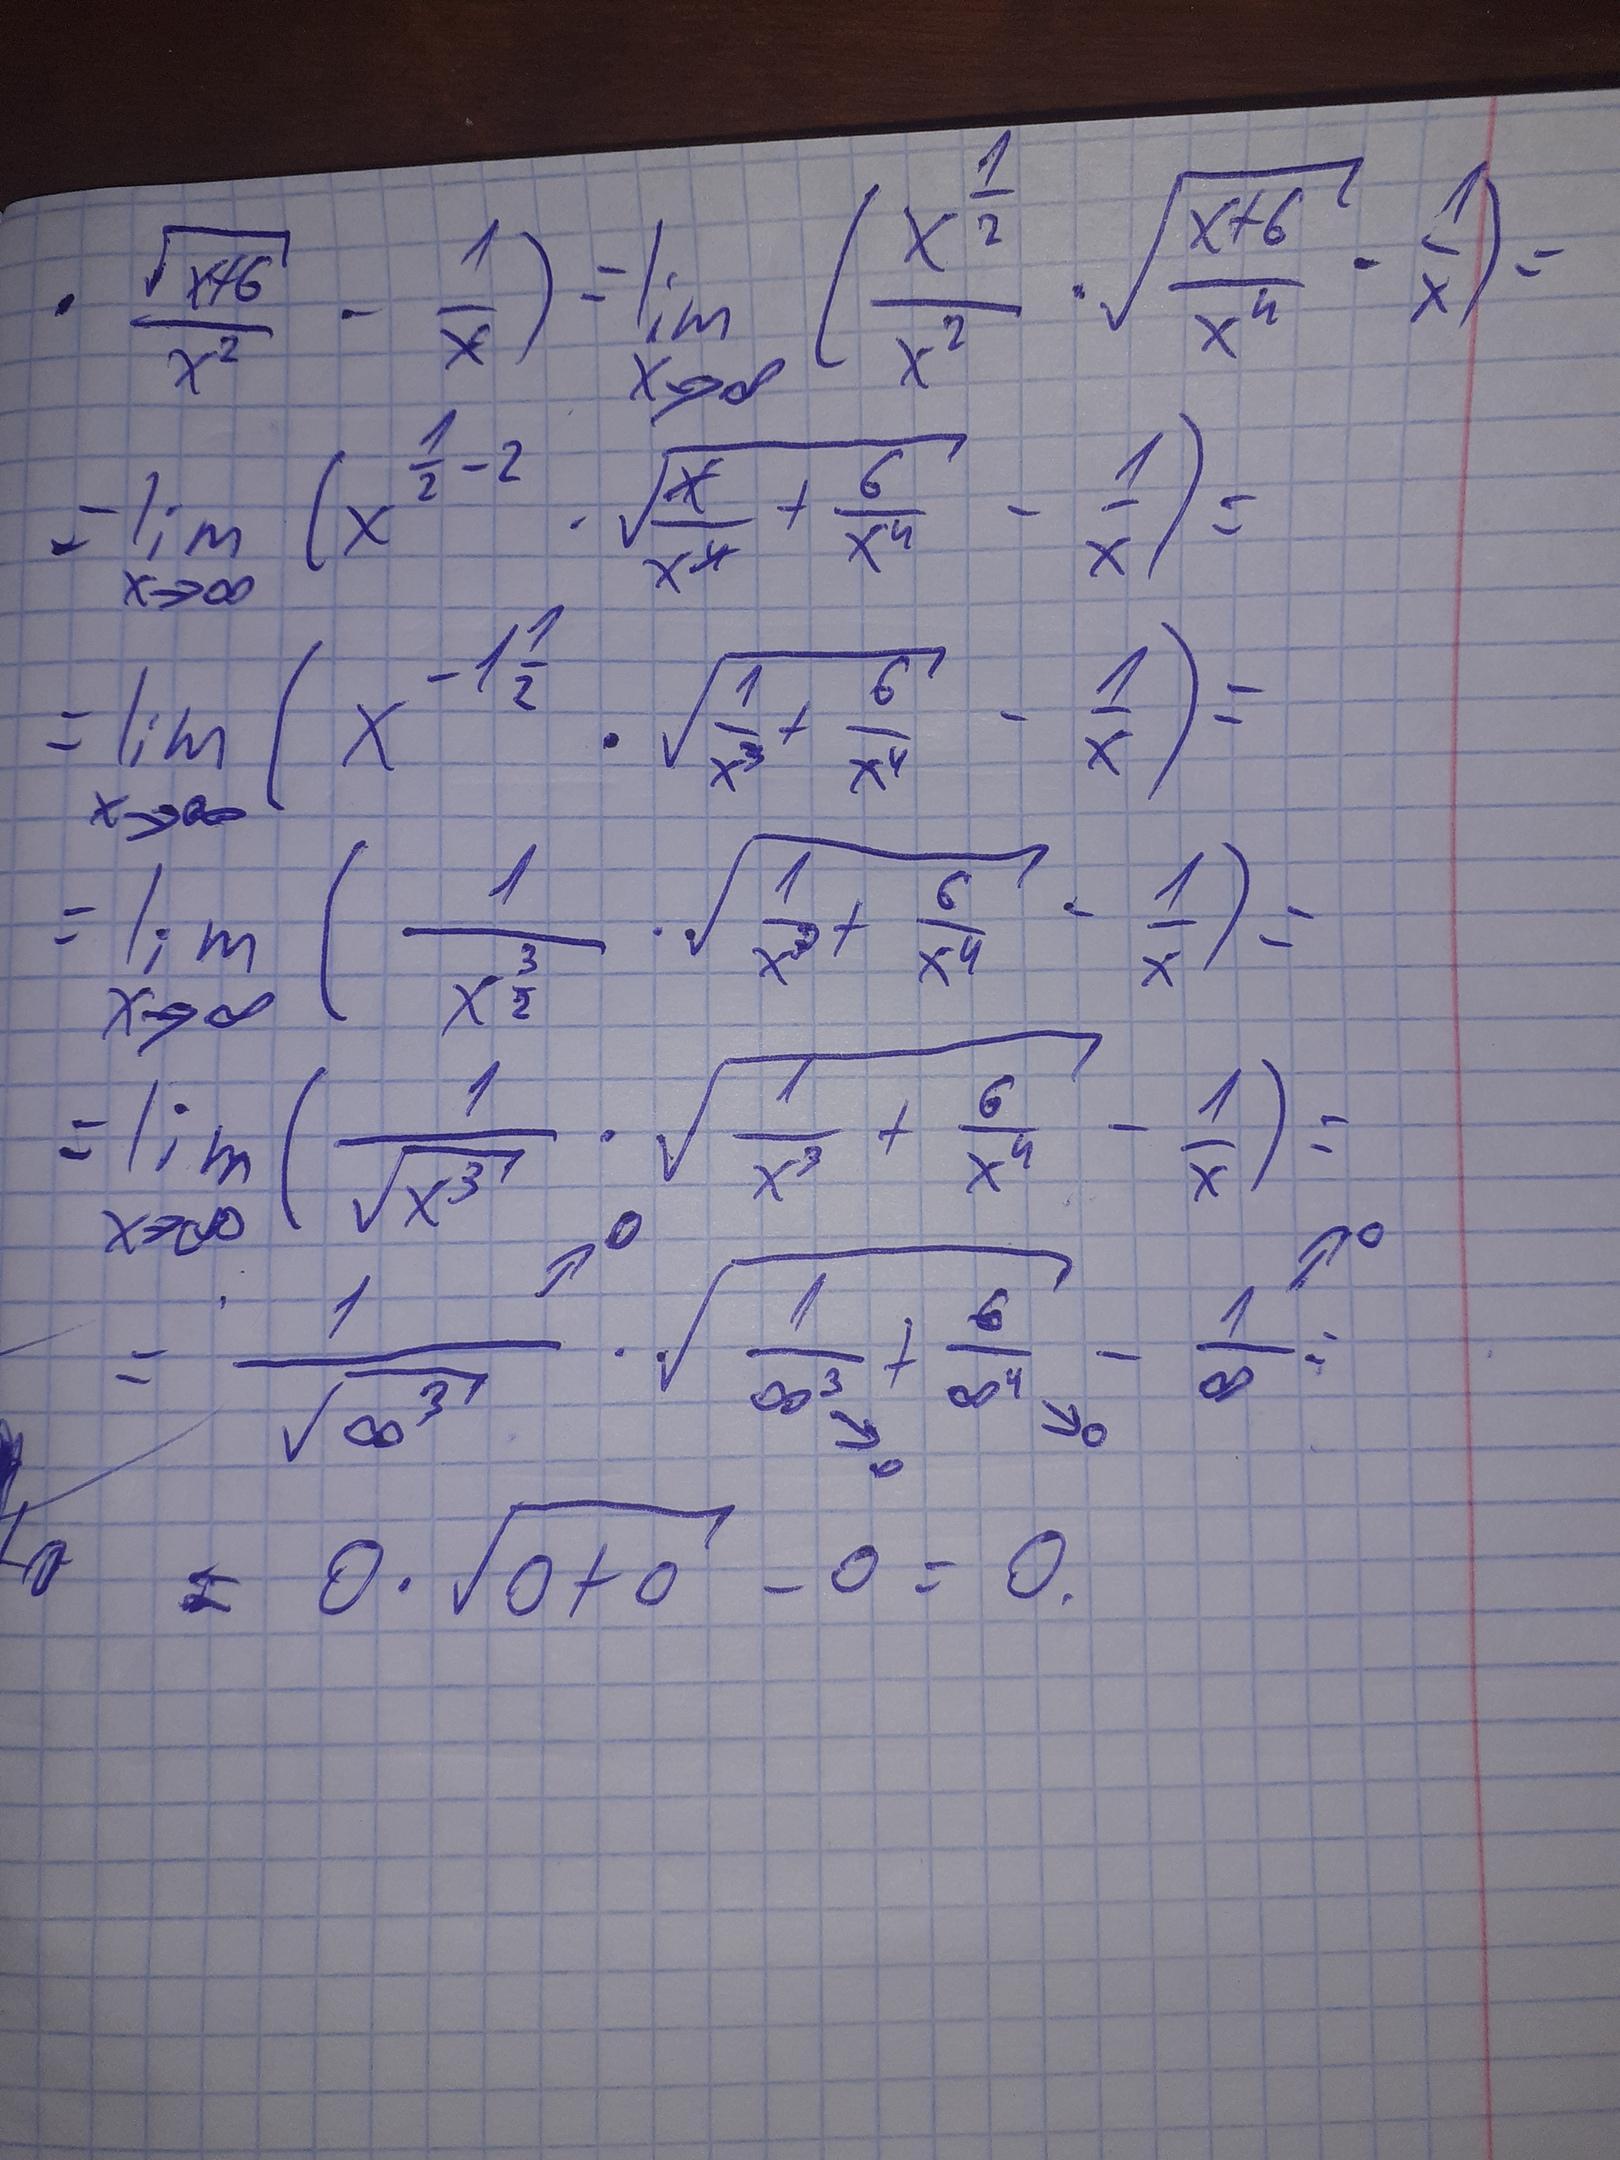 · √(x+6)/x² - 1/x) = lim x→∞ (x^(1/2)/x² · √((x+6)/x⁴) - 1/x) =
= lim x→∞ (x^(1/2-2) · √(x/x⁴ + 6/x⁴) - 1/x) =
= lim x→∞ (x^(-1 1/2) · √(1/x³ + 6/x⁴) - 1/x) =
= lim x→∞ (1/x^(3/2) · √(1/x³ + 6/x⁴) - 1/x) =
= lim x→∞ (1/√(x³) · √(1/x³ + 6/x⁴) - 1/x) =
= 1/√(∞³) →0 · √(1/∞³ →0 + 6/∞⁴ →0) - 1/∞ →0 =
= 0 · √(0+0) - 0 = 0.